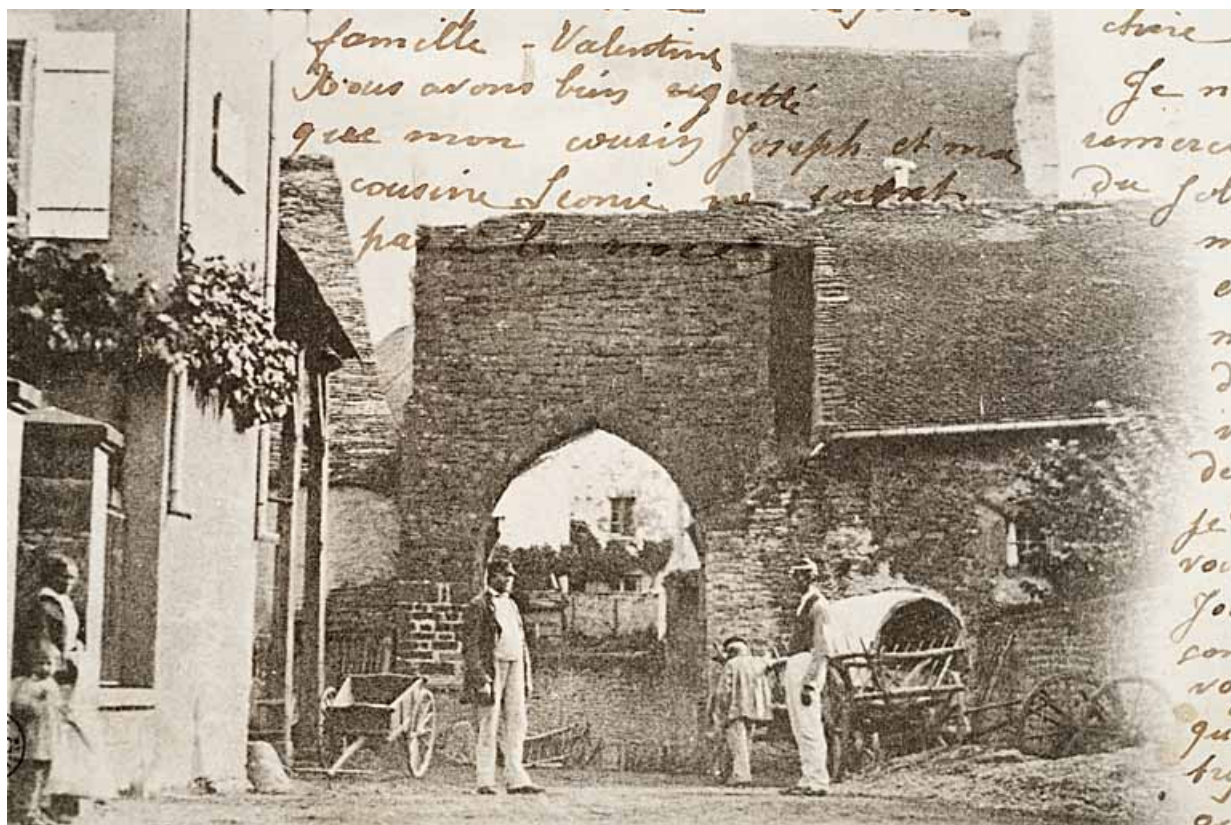 famille - Valentine
Nous avons bien regretté
que mon cousin Joseph et ma
cousine Leonie ne soient
pas à la noce
chère
Je n
remerci
du Jol
m
e
m
d
n
de
je
vou
Jo
con
vo
qu